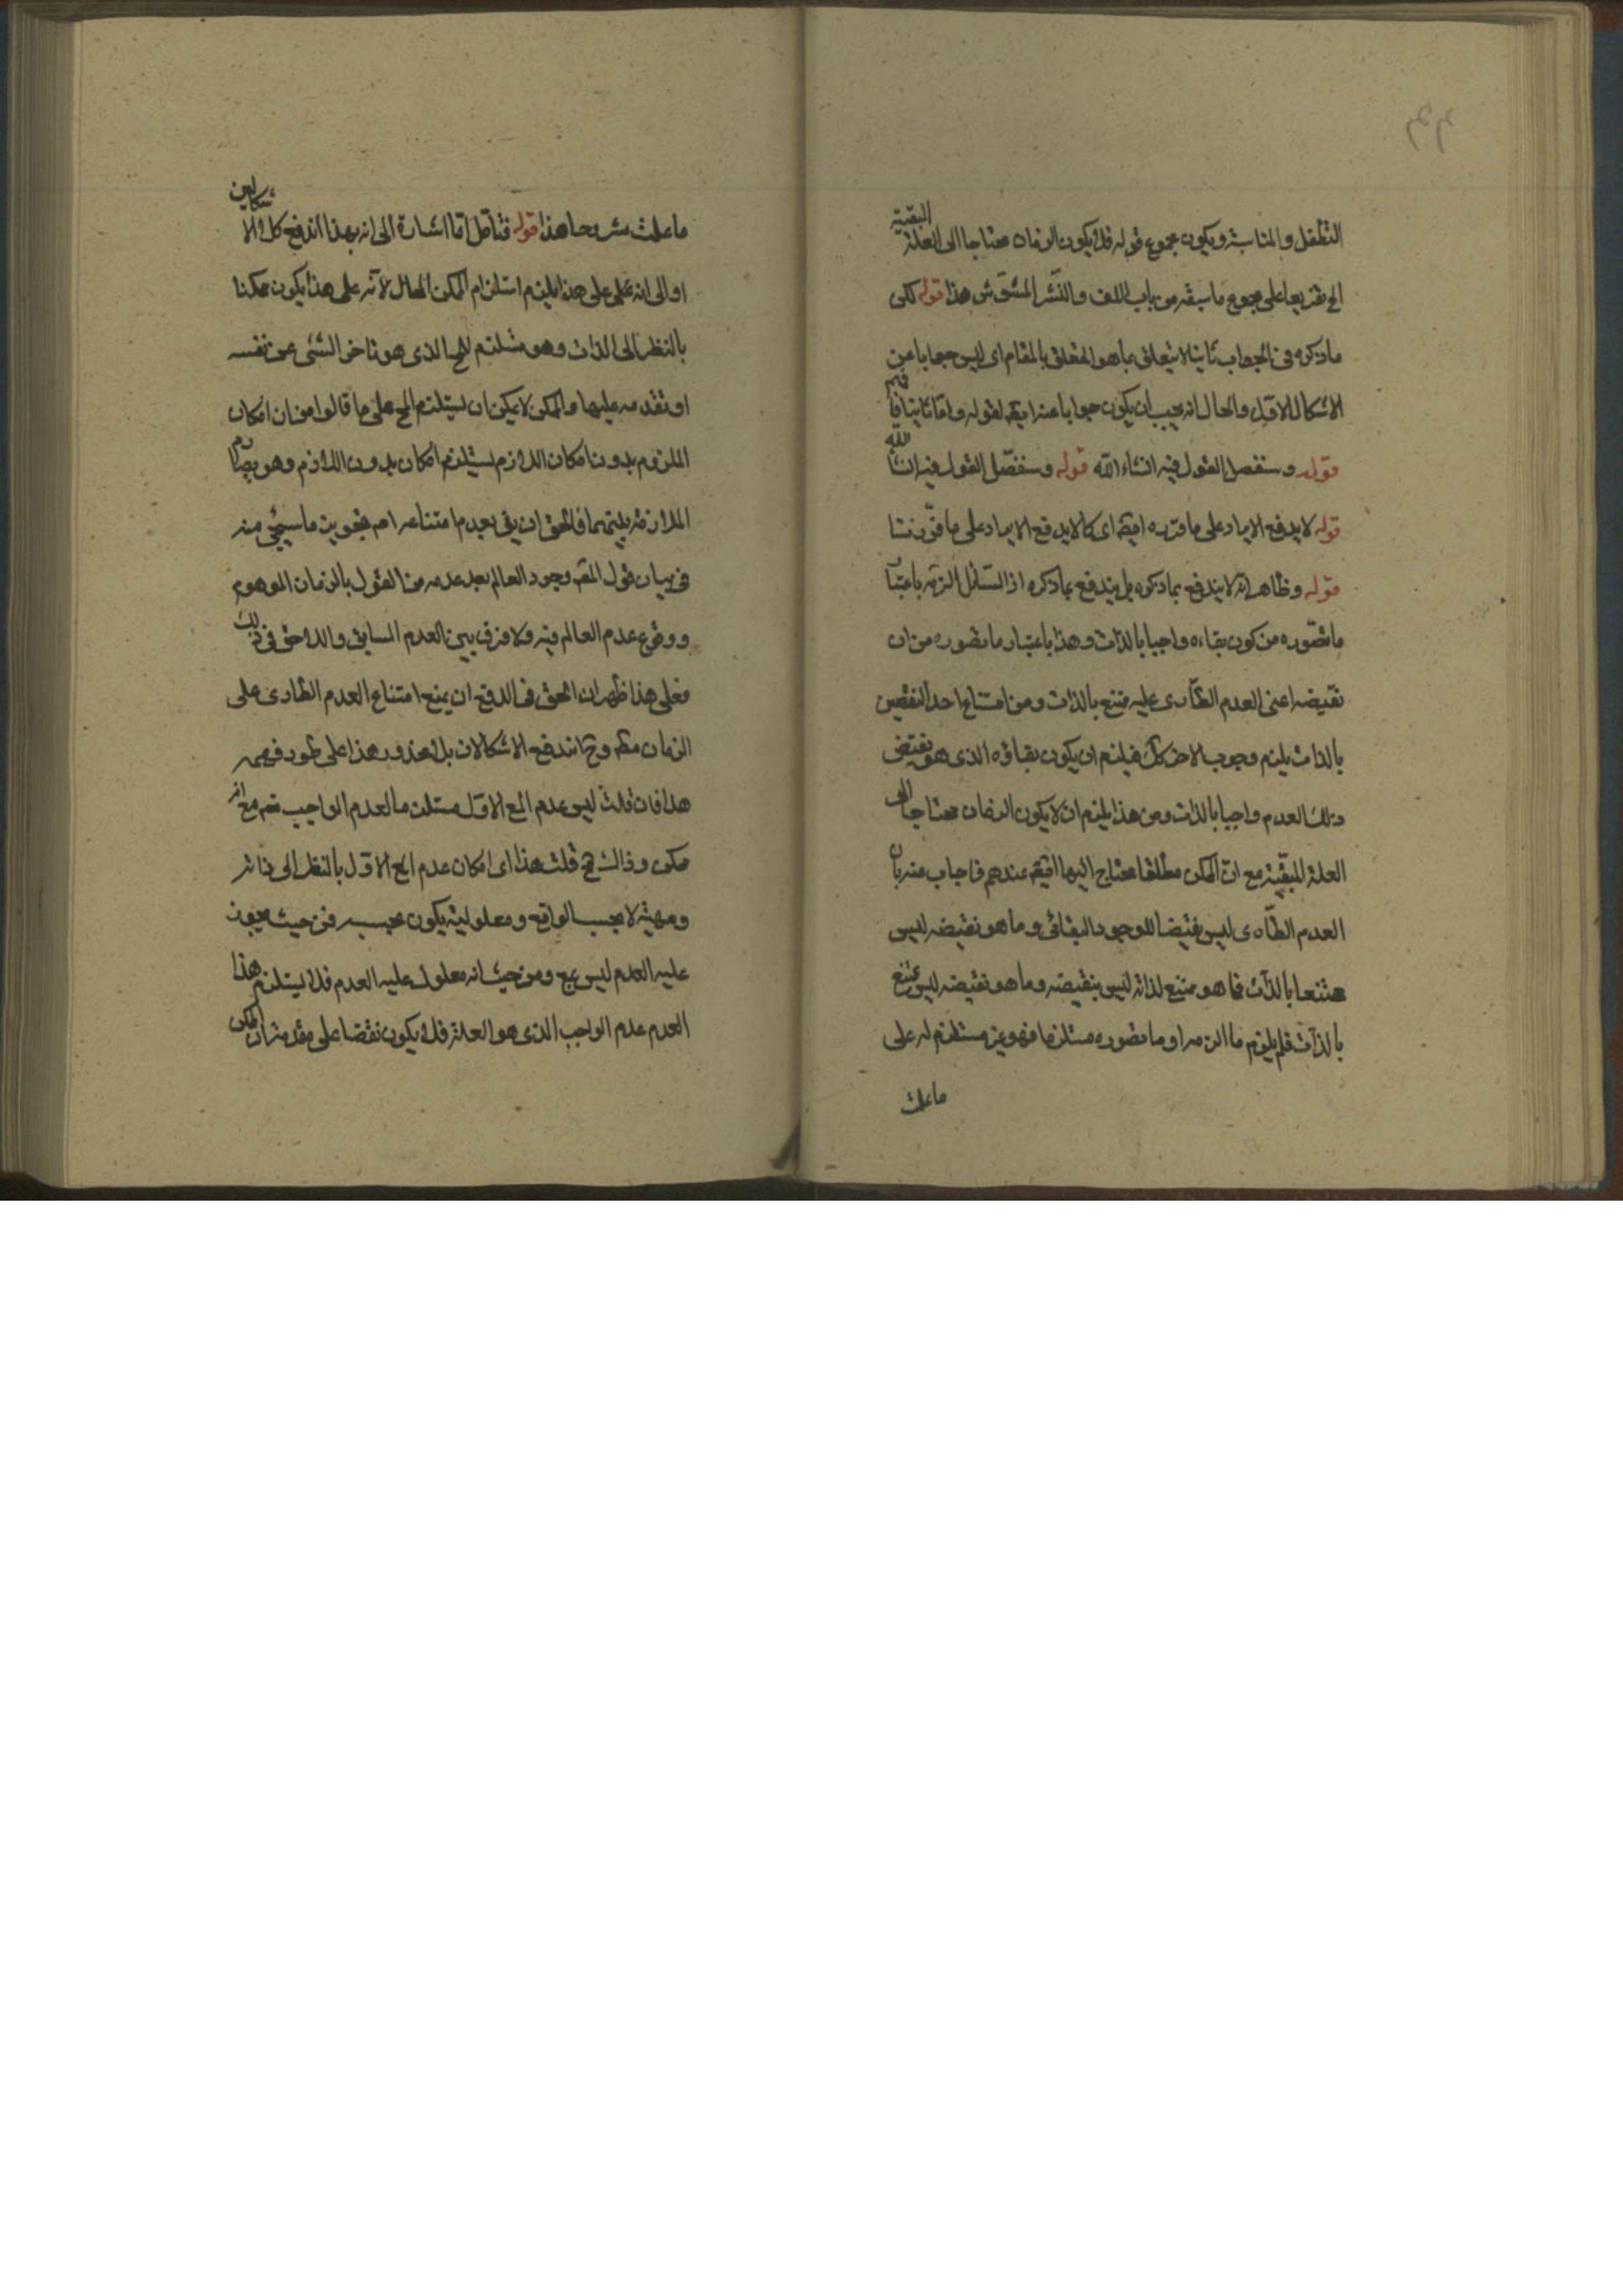 التطفل والمناسبة ويكون مجموع قوله فلا يكون الزمان محتاجا الى العلة المبقية
الخ تفريعا على مجموع ما سبقه من باب اللف والنشر المشوش هذا قوله لكن
ما ذكره في الجواب ثانيا لا يتعلق بما هو المتعلق بالمقام اى ليس جوابا عن
الاشكال الاول والحال انه يجب ان يكون جوابا عنه ايضا لقوله واما ثانيا فافهم
قوله وسنفصل القول فيه انشاء الله قوله وسنفصل القول فيه انشا الله
قوله لا يدفع الايراد على ما قرره ايضا اى كما لا يدفع الايراد على ما قررنا
قوله وظاهر انه لا يندفع بما ذكره بل يندفع بما ذكره اذ التسلسل الزمه باعتبار
ما تصوره من كون بقاءه واجبا بالذات وهذا باعتبار ما تصوره من ان
نقيضه اعنى العدم الطارى عليه ممتنع بالذات ومن امتناع احد النقيضين
بالذات يلزم وجوب الاخر كك فيلزم ان يكون بقاؤه الذى هو نقيض
ذلك العدم واجبا بالذات ومن هذا يلزم ان لا يكون الزمان محتاجا الى
العلة المبقية مع ان الممكن مطلقا محتاج اليها ايضا عندهم فاجاب عنه بان
العدم الطارى ليس نقيضا للوجود البقائى وما هو نقيضه ليس
ممتنعا بالذات فما هو ممتنع لذاته ليس بنقيضه وما هو نقيضه ليس بممتنع
بالذات فلم يلزم ما الزمه او ما تصوره مستلزما فهو غير مستلزم له على
ما علمت
ما علمت مشروحا هذا قوله فتأمل اما اشارة الى انه بهذا اندفع كلا الاشكالين
او الى انه على هذا يلزم استلزام الممكن المحال لانه على هذا يكون ممكنا
بالنظر الى الذات وهو مستلزم للمح الذى هو تاخر الشئ عن نفسه
او تقدمه عليها والممكن لا يمكن ان يستلزم المح على ما قالوا من ان امكان
الملزوم بدون امكان اللازم يستلزم امكان بدون اللازم وهو يصادم
الملازمة بينهما فالحق ان يق بعدم امتناعه ام بتجويز ما سيجئ منه
فى بيان قول المصـ وجود العالم بعد عدمه من القول بالزمان الموهوم
ووقوع عدم العالم فيه ولا فرق بين العدم السابق واللاحق فى ذلك
فعلى هذا ظهر ان الحق فى الدفع ان يمنع امتناع العدم الطارى على
الزمان مطـ وح اندفع الاشكالان بلا محذور هذا على طور فهمه
هذا فان قلت ليس عدم المع الاول مستلزما لعدم الواجب تعـ مع انه
ممكن وذاك مح قلت هذا اى امكان عدم المع الاول بالنظر الى ذاته
ومهيته لا بحسب الواقع ومعلوليته يكون بحسبه فمن حيث يجوز
عليه العدم ليس بمع ومن حيث انه معلول عليه العدم فلا يستلزم هذا
العدم عدم الواجب الذى هو العلة فلا يكون نقضا على مقدمة ان الممكن